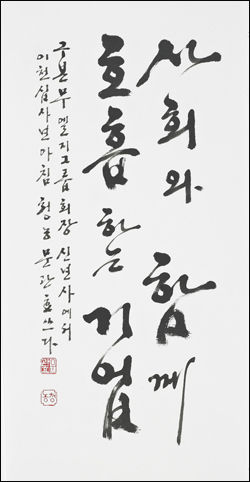 사회와 함께
호흡하는 기업
구본무 엘지그룹 회장 신년사에서
이천십사년 아침 청농 문관효 쓰다